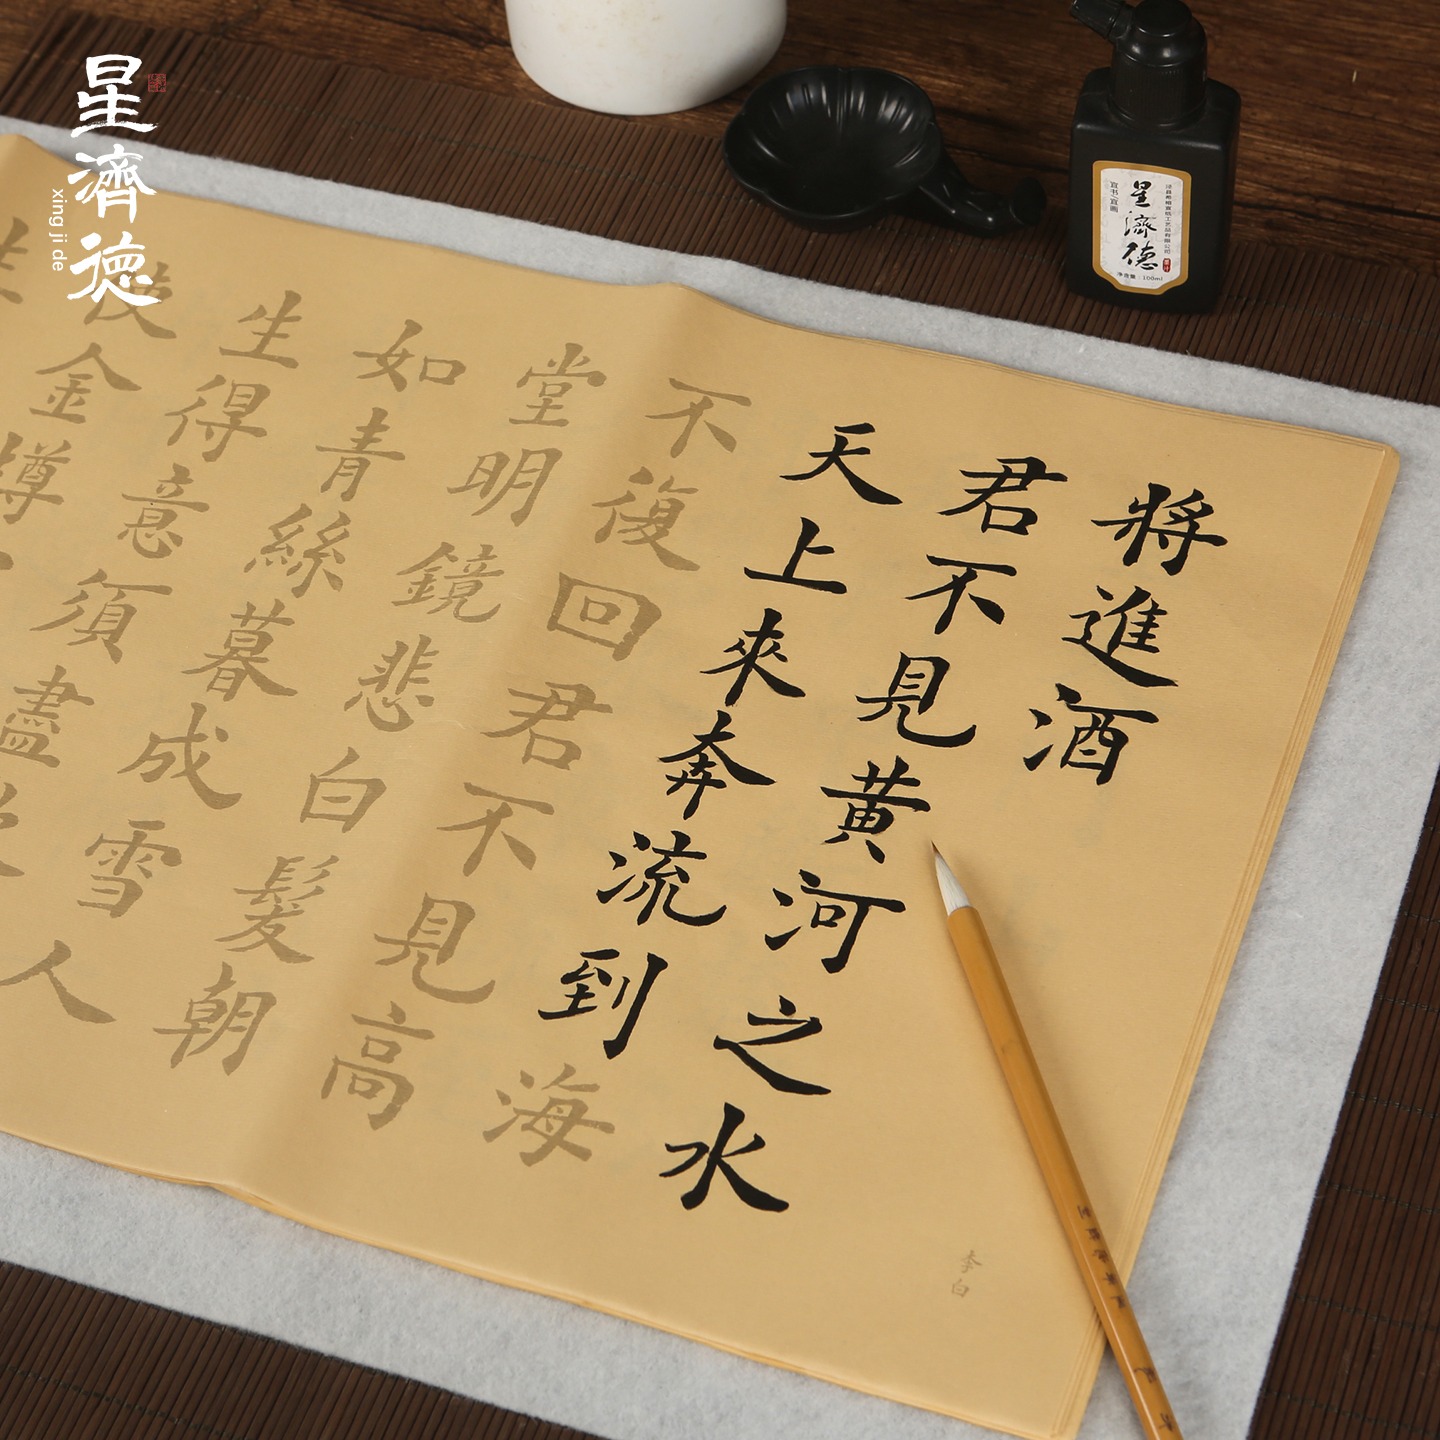 星濟德
xing ji de
將進酒
李白
君不見黃河之水
天上來奔流到海
不復回君不見高
堂明鏡悲白髮朝
如青絲暮成雪人
生得意須盡
使金樽
星濟德
宜书/宜画
净含量:100ml